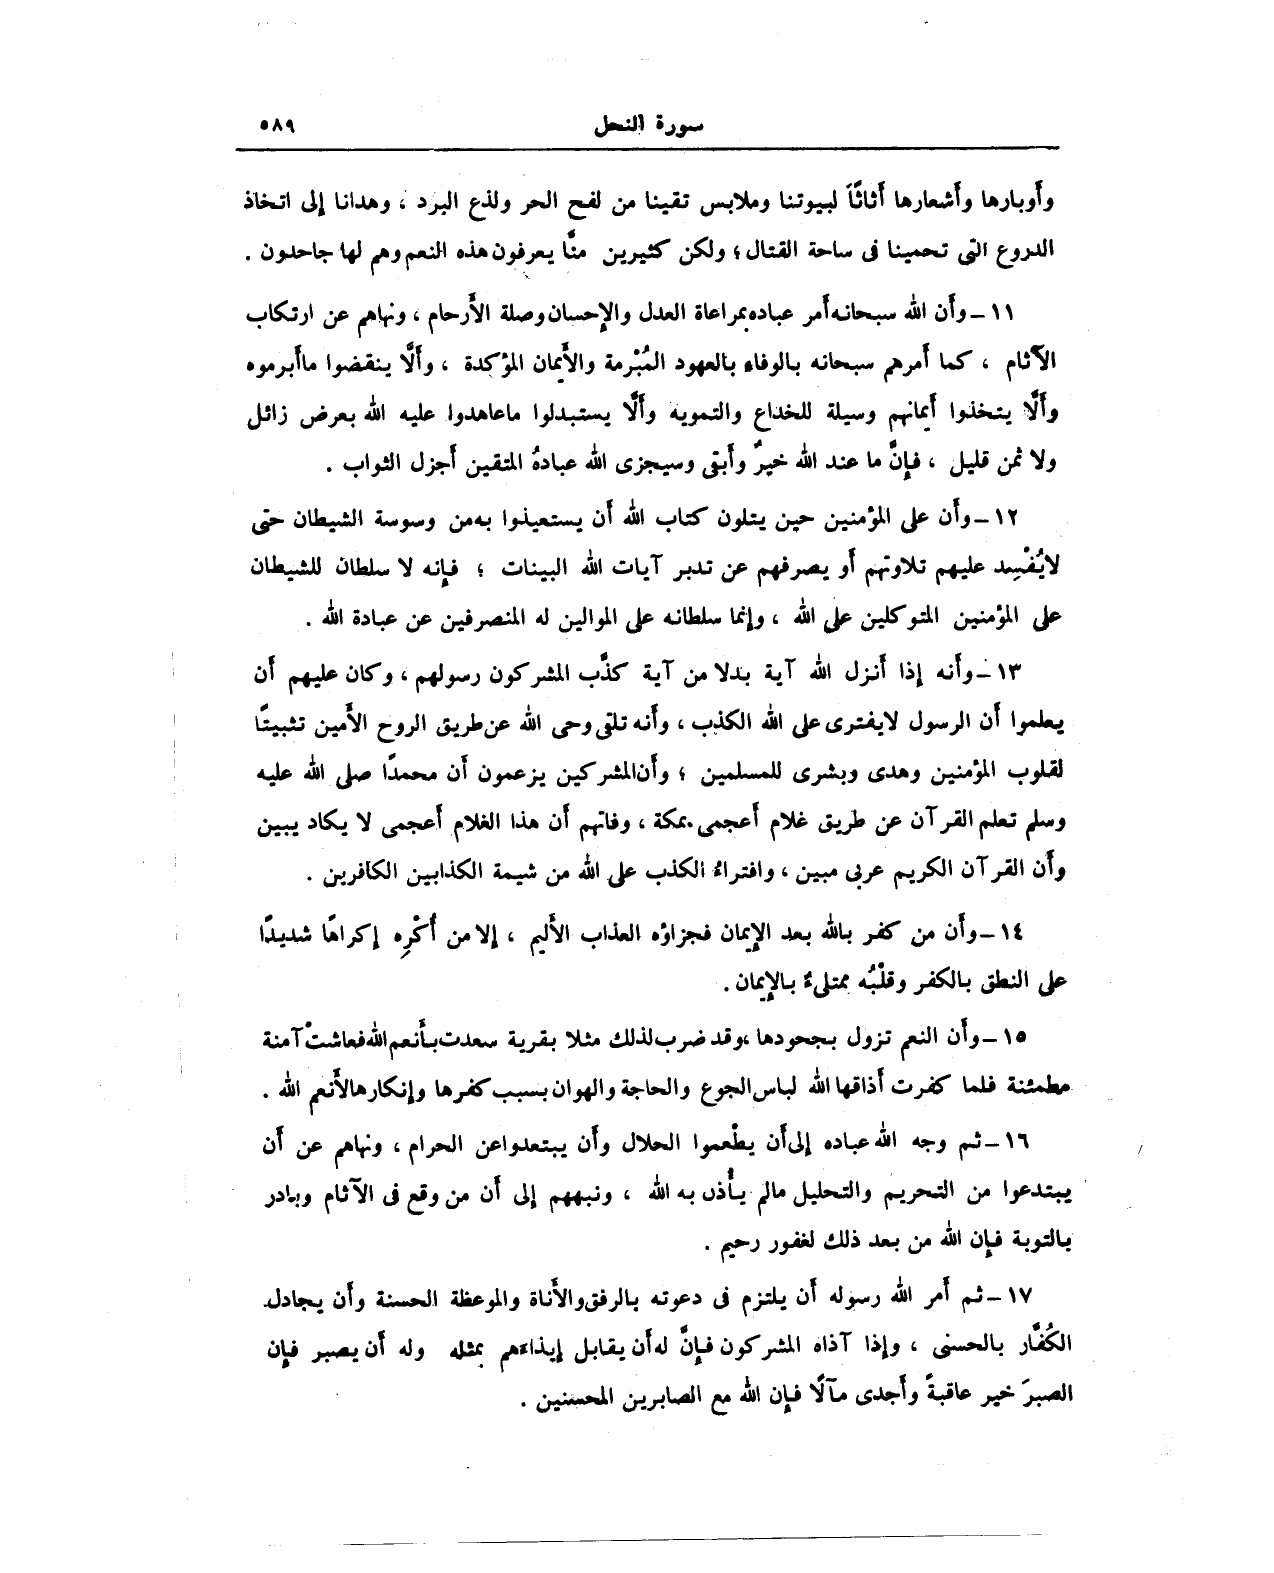 سورة النحل ٥٨٩
وأوبارها وأشعارها أثاثًا لبيوتنا وملابس تقينا من لفح الحر ولذع البرد ، وهدانا إلى اتخاذ
الدروع التى تحمينا فى ساحة القتال ؛ ولكن كثيرين منَّا يعرفون هذه النعم وهم لها جاحدون .
١١ – وأن الله سبحانه أمر عباده بمراعاة العدل والإحسان وصلة الأرحام ، ونهاهم عن ارتكاب
الآثام ، كما أمرهم سبحانه بالوفاء بالعهود المُبْرمة والأيمان المؤكدة ، وألَّا ينقضوا ما أبرموه
وألَّا يتخذوا أيمانهم وسيلة للخداع والتمويه وألَّا يستبدلوا ماعاهدوا عليه الله بعرض زائل
ولا ثمن قليل ، فإنَّ ما عند الله خيرٌ وأبقى وسيجزى الله عبادهُ المتقين أجزل الثواب .
١٢ – وأن على المؤمنين حين يتلون كتاب الله أن يستعيذوا به من وسوسة الشيطان حتى
لايُفْسِد عليهم تلاوتهم أو يصرفهم عن تدبر آيات الله البينات ؛ فإنه لا سلطان للشيطان
على المؤمنين المتوكلين على الله ، وإنما سلطانه على الموالين له المنصرفين عن عبادة الله .
١٣ – وأنه إذا أنزل الله آية بدلا من آية كذَّب المشركون رسولهم ، وكان عليهم أن
يعلموا أن الرسول لايفترى على الله الكذب ، وأنه تلقى وحى الله عن طريق الروح الأمين تثبيتًا
لقلوب المؤمنين وهدى وبشرى للمسلمين ؛ وأن المشركين يزعمون أن محمدًا صلى الله عليه
وسلم تعلم القرآن عن طريق غلام أعجمى بمكة ، وفاتهم أن هذا الغلام أعجمى لا يكاد يبين
وأن القرآن الكريم عربى مبين ، وافتراءُ الكذب على الله من شيمة الكذابين الكافرين .
١٤ – وأن من كفر بالله بعد الإيمان فجزاؤه العذاب الأليم ، إلا من أُكْرِه إكراهًا شديدًا
على النطق بالكفر وقلْبُه ممتلىءٌ بالإيمان .
١٥ – وأن النعم تزول بجحودها ،وقد ضرب لذلك مثلا بقرية سعدت بأنعم الله فعاشتْ آمنة
مطمئنة فلما كفرت أذاقها الله لباس الجوع والحاجة والهوان بسبب كفرها وإنكارها لأنعم الله .
١٦ – ثم وجه الله عباده إلى أن يطْعموا الحلال وأن يبتعدوا عن الحرام ، ونهاهم عن أن
يبتدعوا من التحريم والتحليل مالم يأذن به الله ، ونبههم إلى أن من وقع فى الآثام وبادر
بالتوبة فإن الله من بعد ذلك لغفور رحيم .
١٧ – ثم أمر الله رسوله أن يلتزم فى دعوته بالرفق والأناة والموعظة الحسنة وأن يجادل
الكُفَّار بالحسنى ، وإذا آذاه المشركون فإنَّ له أن يقابل إيذاءهم بمثله وله أن يصبر فإن
الصبرَ خير عاقبةً وأجدى مآلًا فإن الله مع الصابرين المحسنين .